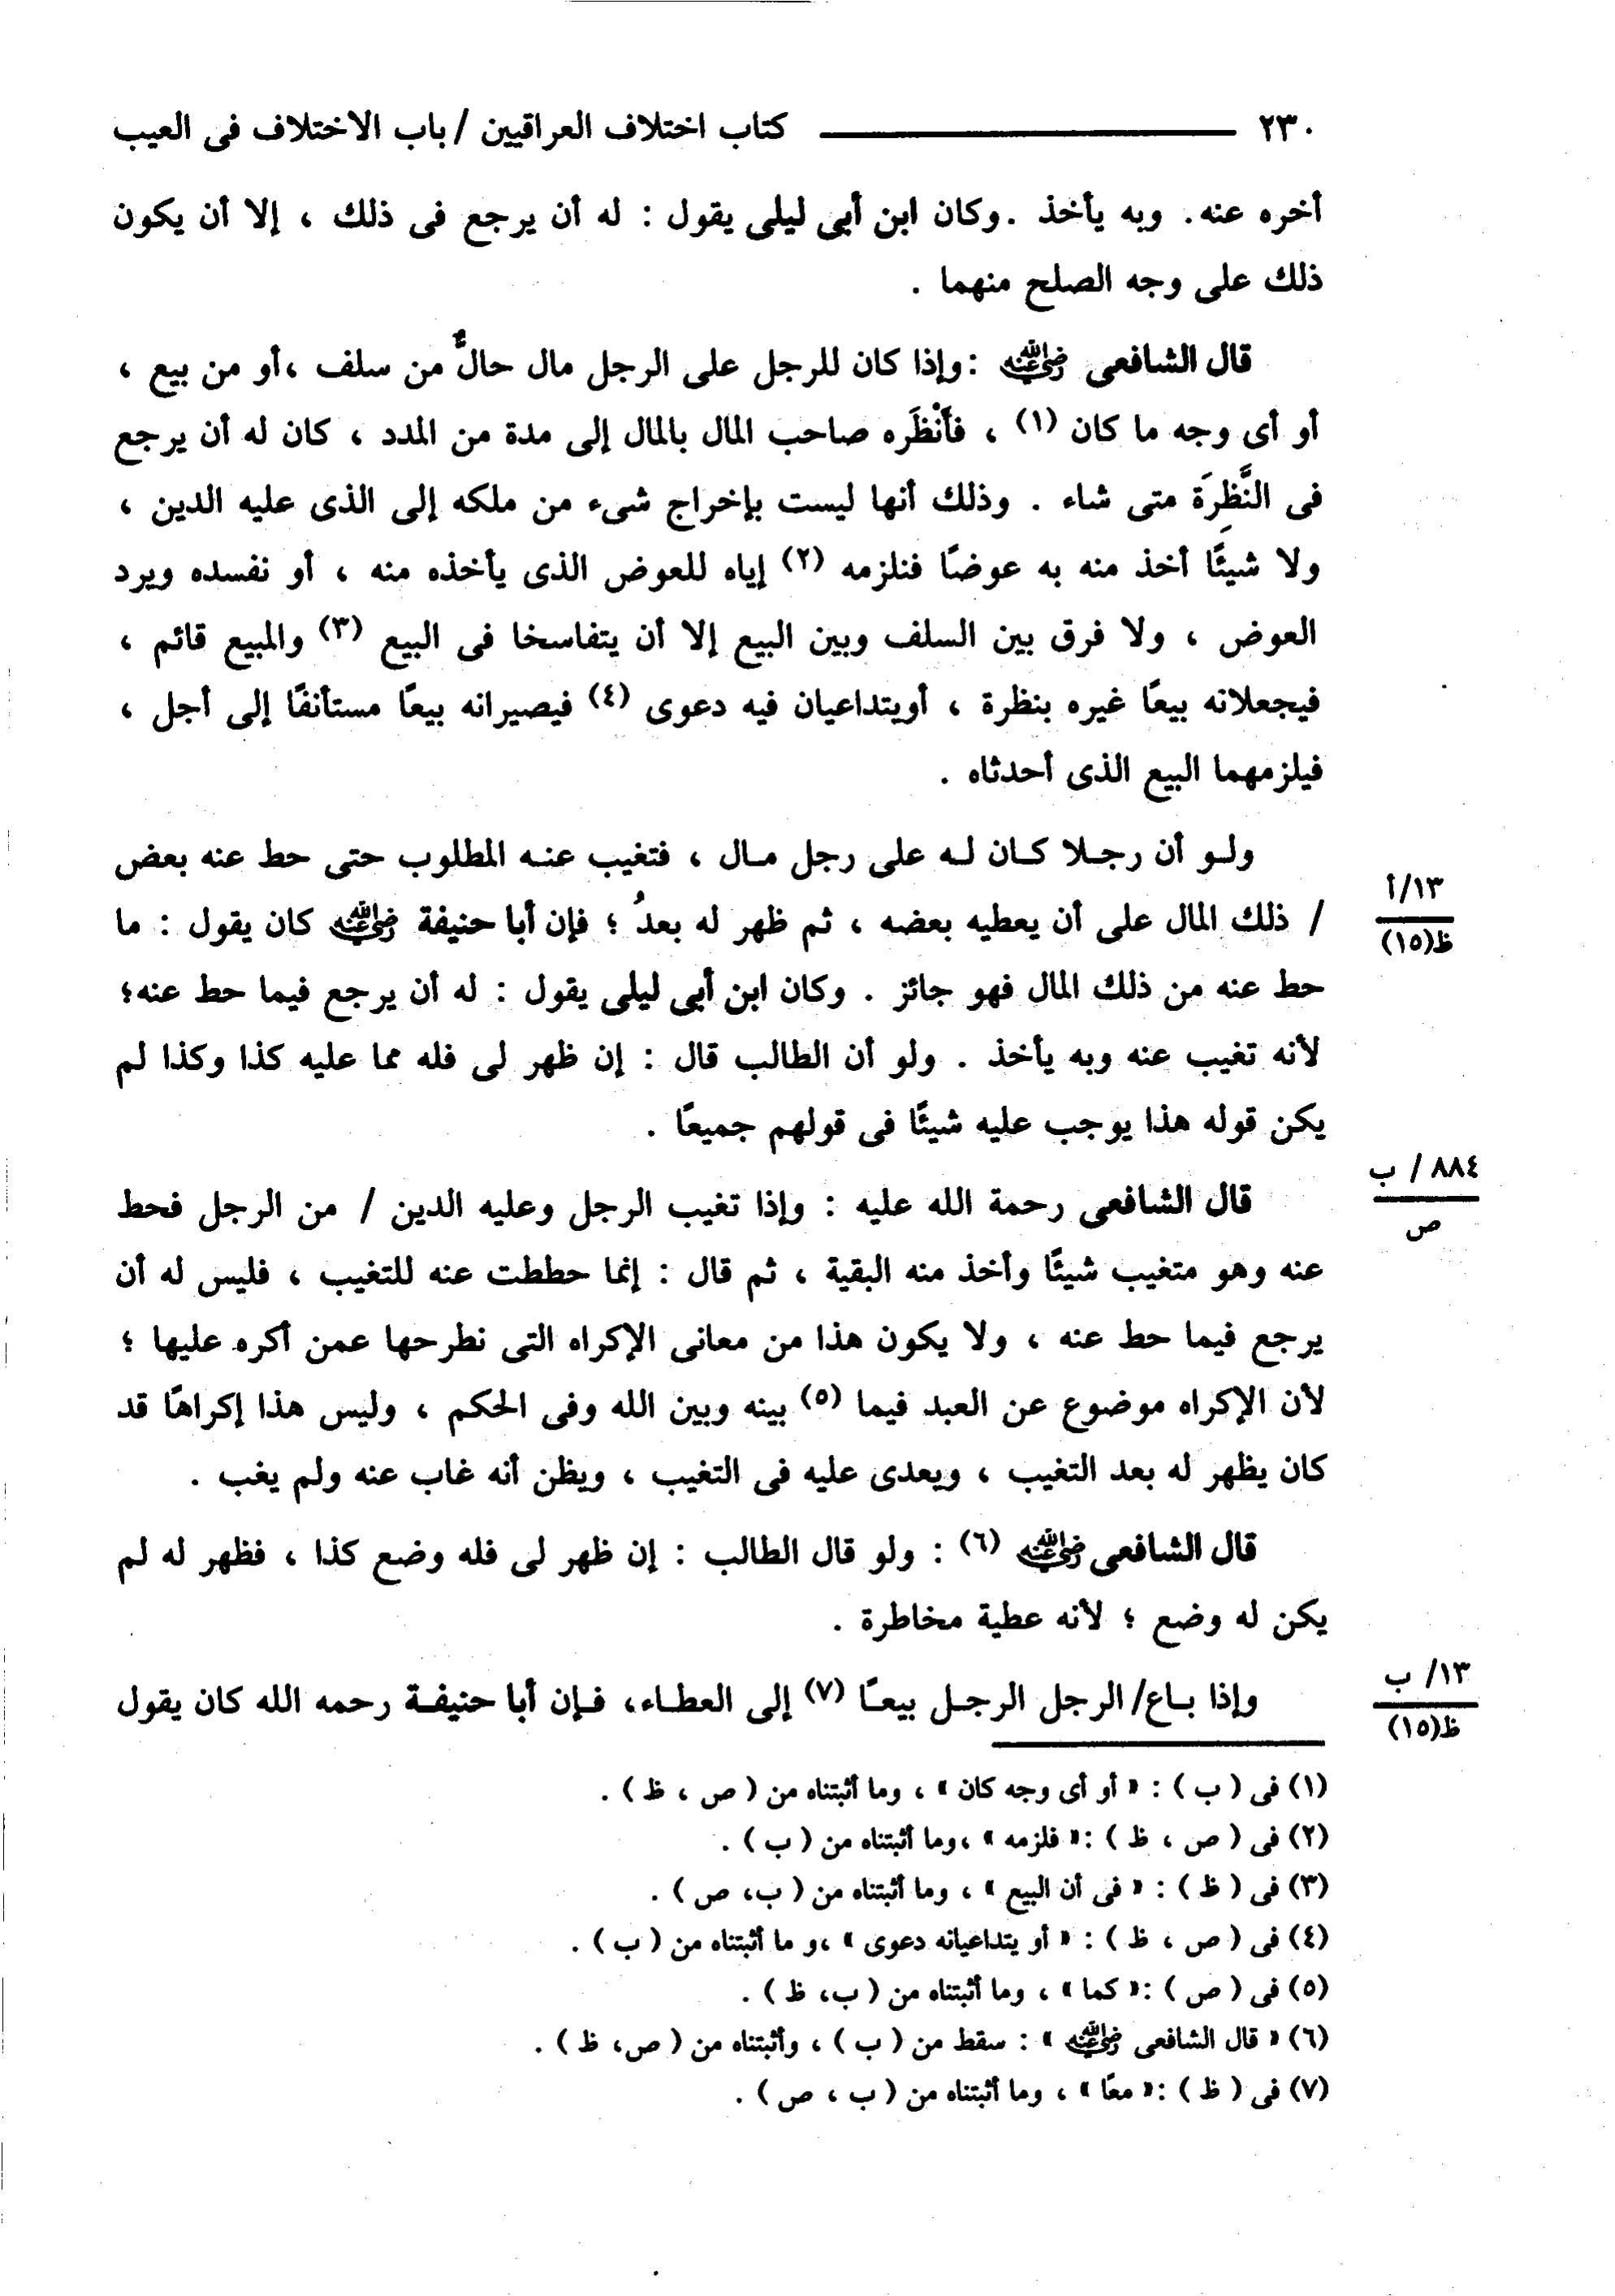 ٢٣٠ كتاب اختلاف العراقيين / باب الاختلاف فى العيب
أخره عنه. وبه يأخذ .وكان ابن أبى ليلى يقول : له أن يرجع فى ذلك ، إلا أن يكون
ذلك على وجه الصلح منهما .
قال الشافعى رضي الله عنه : وإذا كان للرجل على الرجل مال حالٌّ من سلف ،أو من بيع ،
أو أى وجه ما كان (١) ، فأَنْظَره صاحب المال بالمال إلى مدة من المدد ، كان له أن يرجع
فى النَّظِرَة متى شاء . وذلك أنها ليست بإخراج شىء من ملكه إلى الذى عليه الدين ،
ولا شيئًا أخذ منه به عوضًا فنلزمه (٢) إياه للعوض الذى يأخذه منه ، أو نفسده ويرد
العوض ، ولا فرق بين السلف وبين البيع إلا أن يتفاسخا فى البيع (٣) والمبيع قائم ،
فيجعلانه بيعًا غيره بنظرة ، أويتداعيان فيه دعوى (٤) فيصيرانه بيعًا مستأنفًا إلى أجل ،
فيلزمهما البيع الذى أحدثاه .
ولـو أن رجـلا كـان لـه على رجل مـال ، فتغيب عنـه المطلوب حتى حط عنه بعض
/ ذلك المال على أن يعطيه بعضه ، ثم ظهر له بعدُ ؛ فإن أبا حنيفة رضي الله عنه كان يقول : ما
١٣/أ
ظ(١٥)
حط عنه من ذلك المال فهو جائز . وكان ابن أبى ليلى يقول : له أن يرجع فيما حط عنه؛
لأنه تغيب عنه وبه يأخذ . ولو أن الطالب قال : إن ظهر لى فله مما عليه كذا وكذا لم
يكن قوله هذا يوجب عليه شيئًا فى قولهم جميعًا .
٨٨٤ / ب
ص
قال الشافعى رحمة الله عليه : وإذا تغيب الرجل وعليه الدين / من الرجل فحط
عنه وهو متغيب شيئًا وأخذ منه البقية ، ثم قال : إنما حططت عنه للتغيب ، فليس له أن
يرجع فيما حط عنه ، ولا يكون هذا من معانى الإكراه التى نطرحها عمن أكره عليها ؛
لأن الإكراه موضوع عن العبد فيما (٥) بينه وبين الله وفى الحكم ، وليس هذا إكراهًا قد
كان يظهر له بعد التغيب ، ويعدى عليه فى التغيب ، ويظن أنه غاب عنه ولم يغب .
قال الشافعى رضي الله عنه (٦) : ولو قال الطالب : إن ظهر لى فله وضع كذا ، فظهر له لم
يكن له وضع ؛ لأنه عطية مخاطرة .
١٣/ ب
ظ(١٥)
وإذا بـاع/ الرجل الرجـل بيعـًا (٧) إلى العطـاء، فـإن أبا حنيفـة رحمه الله كان يقول
(١) فى ( ب ) : « أو أى وجه كان » ، وما أثبتناه من ( ص ، ظ ) .
(٢) فى ( ص ، ظ ) :« فلزمه » ،وما أثبتناه من ( ب ) .
(٣) فى ( ظ ) : « فى أن البيع » ، وما أثبتناه من ( ب، ص ) .
(٤) فى ( ص ، ظ ) : « أو يتداعيانه دعوى » ،و ما أثبتناه من ( ب ) .
(٥) فى ( ص ) :« كما » ، وما أثبتناه من ( ب، ظ ) .
(٦) « قال الشافعى رضي الله عنه » : سقط من ( ب ) ، وأثبتناه من ( ص، ظ ) .
(٧) فى ( ظ ) :« معًا » ، وما أثبتناه من ( ب ، ص ) .